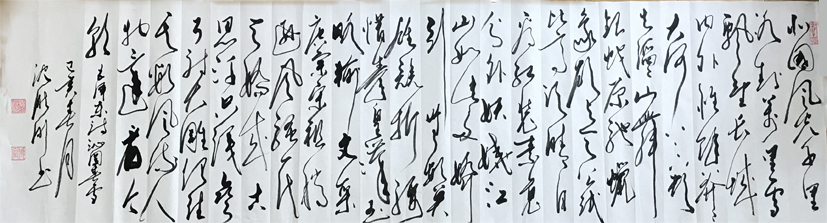 北国风光千里
冰封万里雪
飘望长城
内外惟余莽莽
大河上下顿
失滔滔山舞
银蛇原驰蜡
象欲与天公试
比高须晴日
看红装素裹
分外妖娆江
山如此多娇
引无数英
雄竞折腰
惜秦皇汉武
略输文采
唐宗宋祖稍
逊风骚一代
天骄成吉
思汗只识弯
弓射大雕俱往
矣数风流人
物还看今
朝 毛泽东词沁园春雪
己亥春月
书